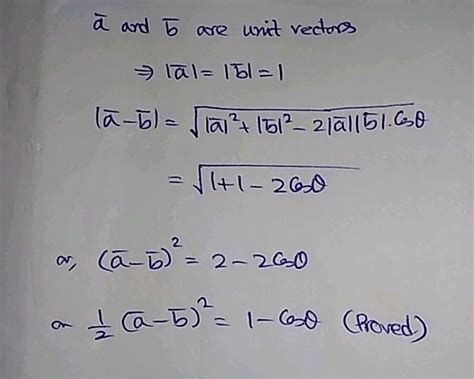 ā and b̄ are unit vectors
⇒ |ā| = |b̄| = 1
|ā-b̄| = √|ā|² + |b̄|² - 2|ā||b̄|.Cosθ
= √1+1-2Cosθ
or, (ā-b̄)² = 2-2Cosθ
or ½ (ā-b̄)² = 1-Cosθ (Proved)